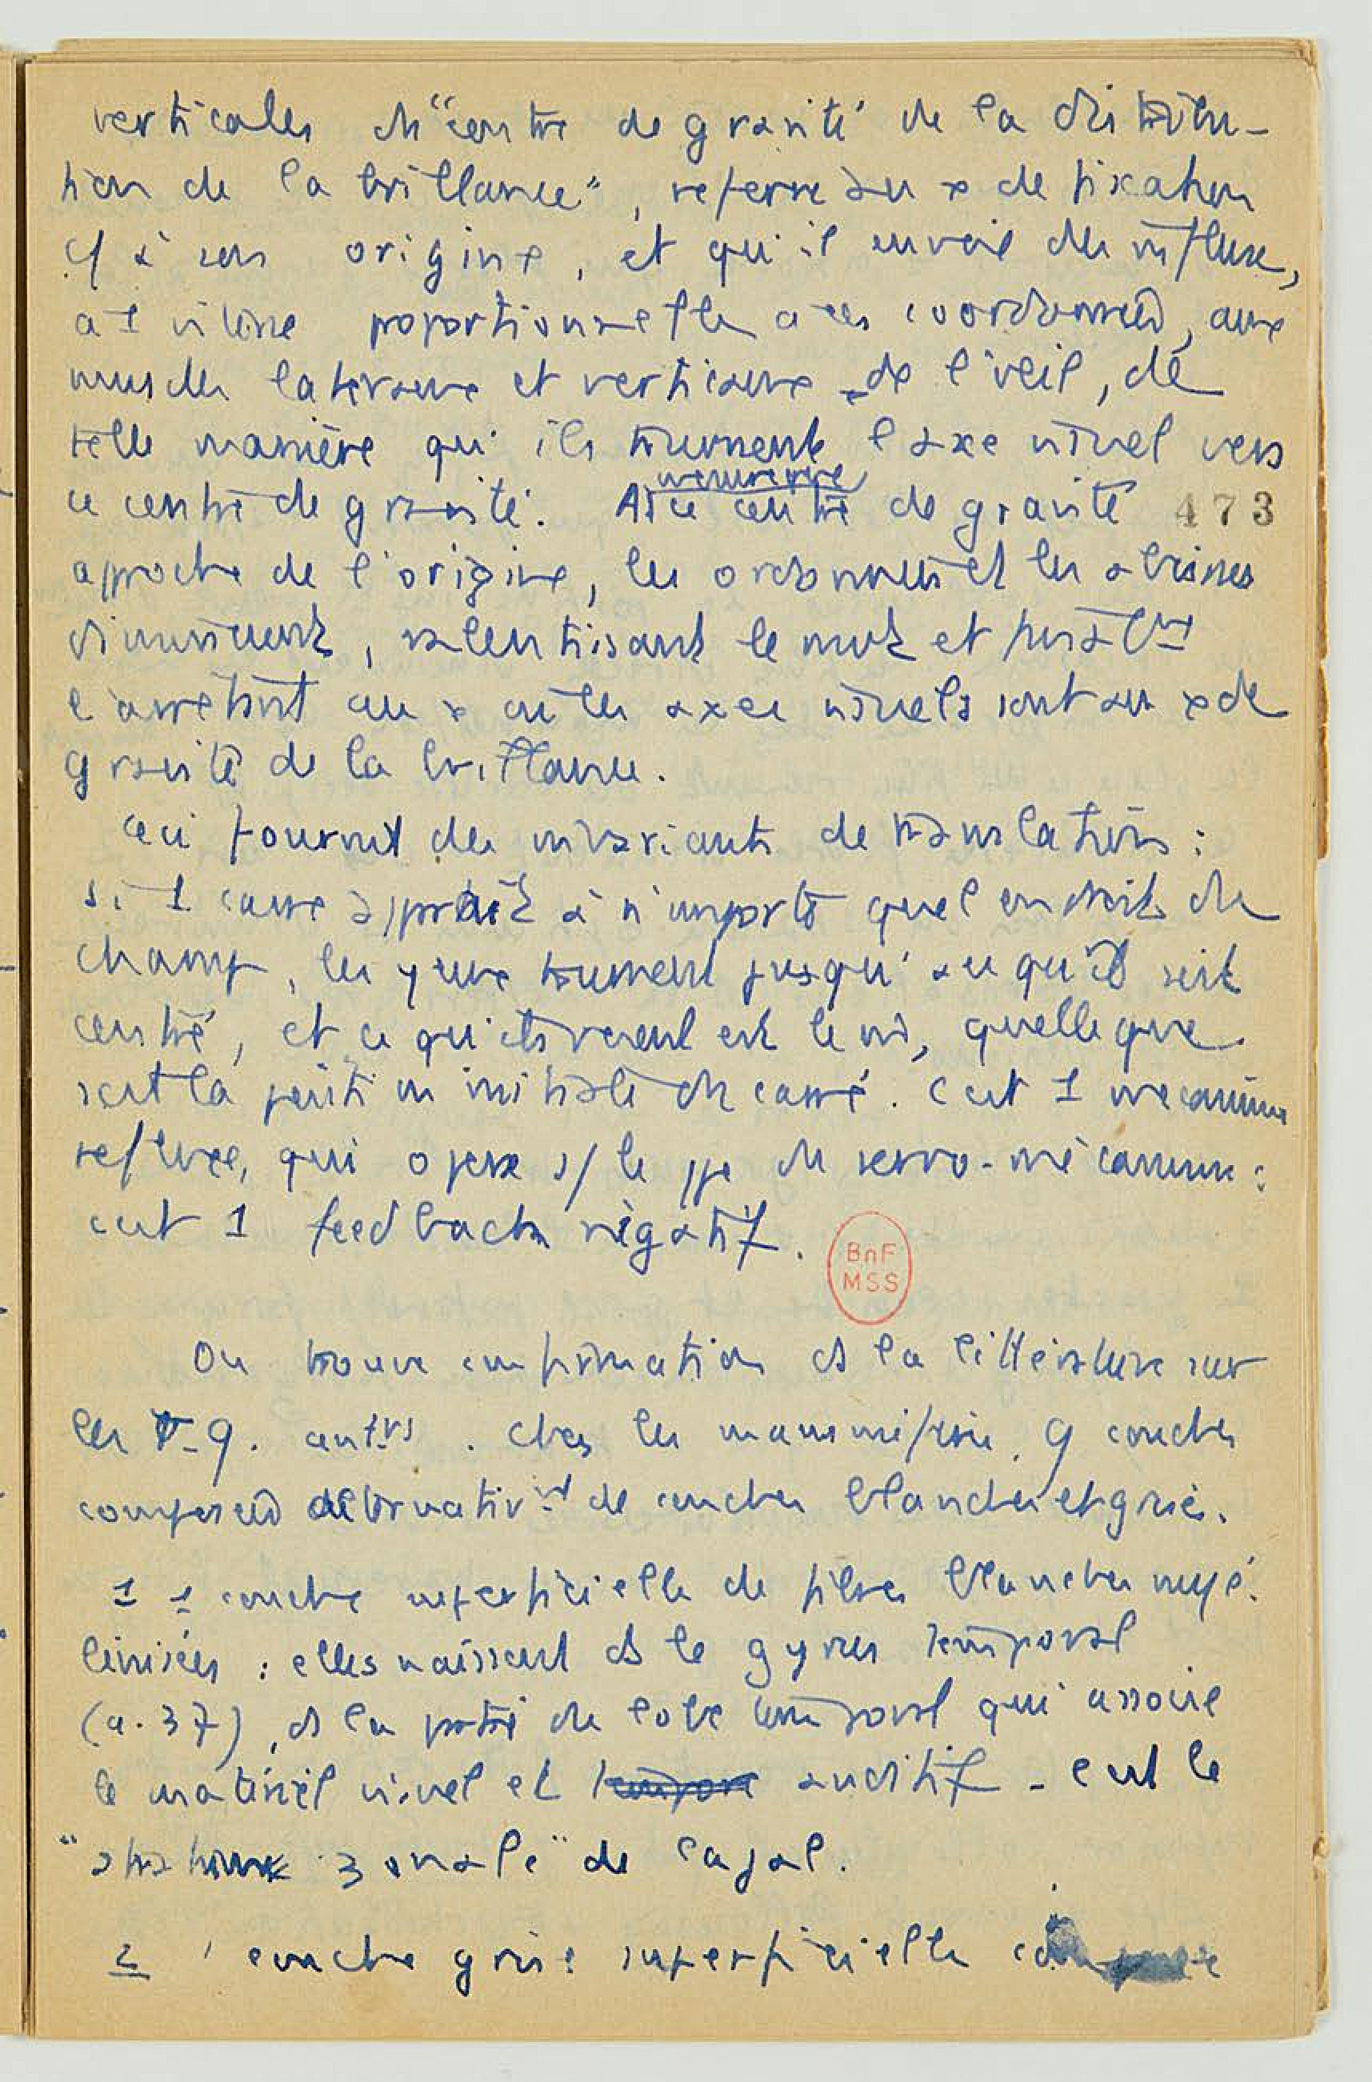 verticales du "centre de gravité de la distribu-
tion de la brillance", referre au × de fixation
c/ à son origine, et qu'il envoie des influx,
à 1 vitesse proportionnelle a ces coordonnées, aux
muscles lateraux et verticaux de l'œil, de
telle manière qu'ils tournent l'axe visuel vers
ce centre de gravité. A ce centre de gravité
473
approche de l'origine, les ordonnées et les abcisses
diminuent, ralentissant le mvt et finalmt
l'arretant au × où les axes visuels sont au × de
gravité de la brillance.
Ceci fournit des invariants de translation :
si 1 carré apparait à n'importe quel endroit du
champ, les yeux tournent jusqu'à ce qu'il soit
centré, et ce qu'ils verront est le m̂, quelle que
soit la position initiale du carré. C'est 1 mecanisme
reflexe, qui opere s/ le ppe du servo-mécanisme :
c'est 1 feedback négatif.
BnF
MSS
On trouve confirmation ds la littérature sur
les T.q. antrs. Chez les mammifères, 9 couches
composées alternativmt de couches blanches et grises.
1 1 couche superficielle de fibres blanches myé-
linisées : elles naissent ds le gyrus temporal
(a. 37), ds la partie du lobe temporal qui associe
le matériel visuel et auditif - c'est le
"stratum zonale" de Cajal.
2 1 couche grise superficielle